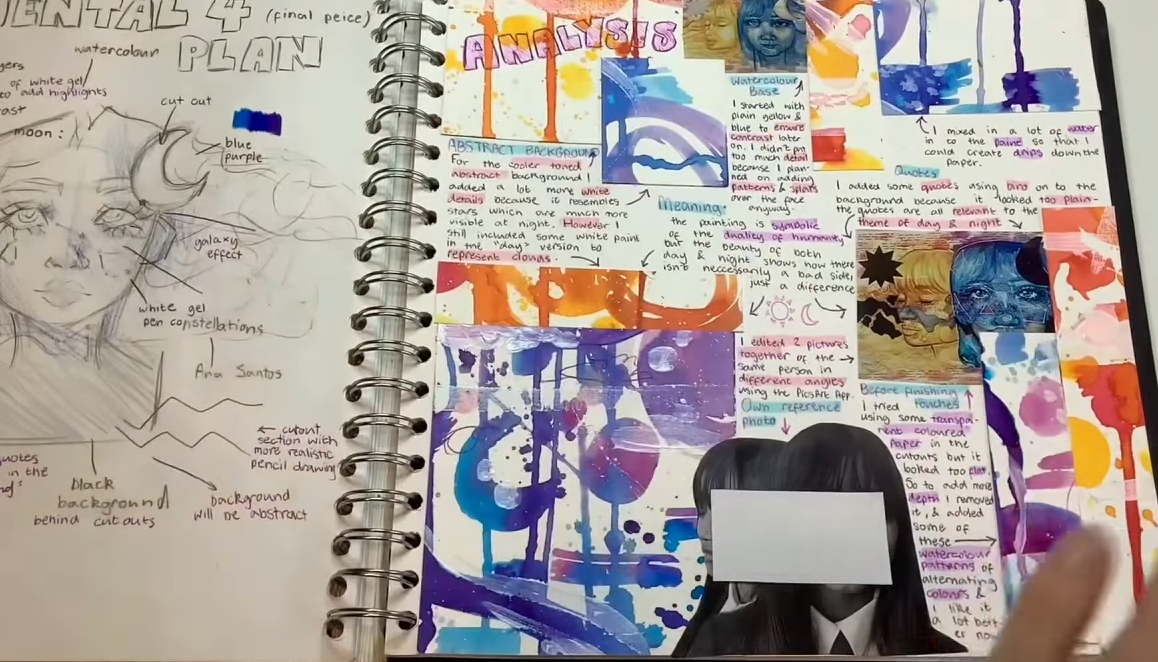 MENTAL 4 (final peice)
PLAN
watercolour
of white gel
to add highlights
cut out
moon :
blue
purple
galaxy
effect
white gel
pen constellations
Ana Santos
← cutout
section with
more realistic
pencil drawing
quotes
in the
black
background
behind cutouts
background
will be abstract
ANALYSIS
ABSTRACT BACKGROUND
For the cooler toned
abstract background I
added a lot more white
details because it resembles
stars which are much more
visible at night. However I
still included some white paint
in the "day" version to
represent clouds.
Watercolour
Base
I started with
plain yellow &
blue to ensure
contrast later
on. I didn't put
too much detail
because I plan-
ned on adding
patterns & splats
over the face
anyway.
I mixed in a lot of water
in to the paint so that I
could create drips down the
paper.
Quotes
I added some quotes using biro on to the
background because it looked too plain-
the quotes are all relevant to the
theme of day & night
Meaning:
the painting is symbolic
of the duality of humanity
but the beauty of both
day & night shows how there
isn't neccessarily a bad side,
just a difference
I edited 2 pictures
together of the →
same person in
different angles
using the PicsArt App.
Own reference
photo
Before finishing
touches
I tried
using some transpa-
rent coloured
paper in the
cutouts but it
looked too flat.
So to add more
depth I removed
it, & added
some of
these →
watercolour
patterns of
alternating
colours &
I like it
a lot bett-
er now